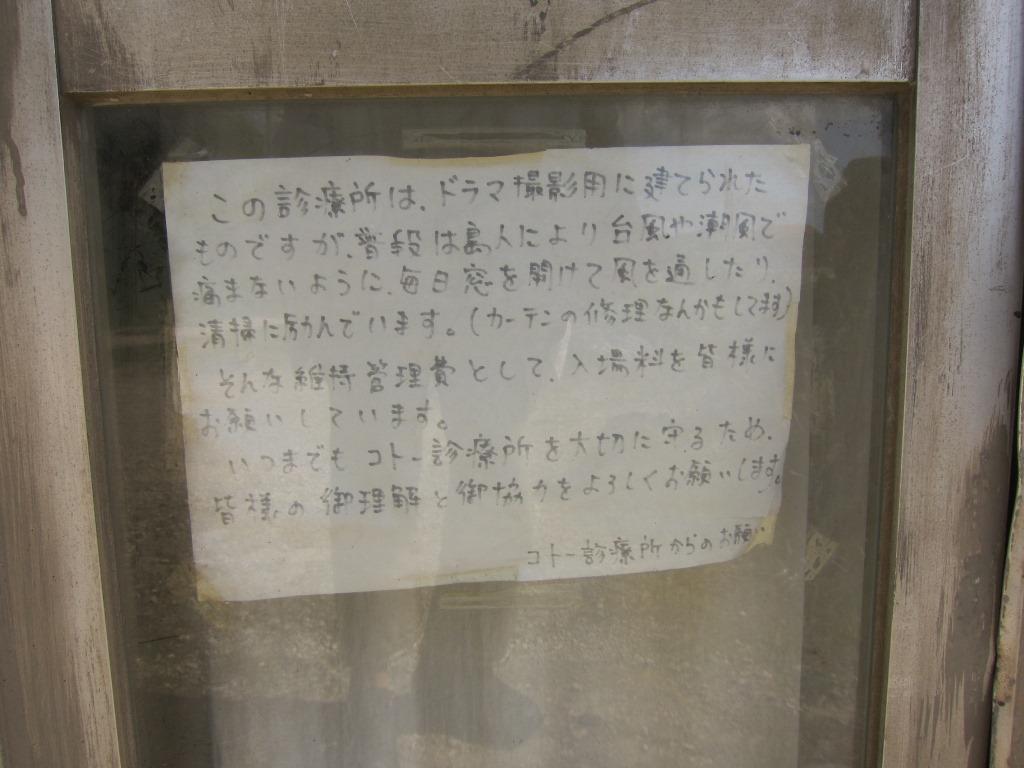 この診療所は、ドラマ撮影用に建てられた
ものですが、普段は島人により台風や潮風で
痛まないように、毎日窓を開けて風を通したり、
清掃に励んでいます。(カーテンの修理なんかもしてます)
そんな維持管理費として、入場料を皆様に
お願いしています。
いつまでもコトー診療所を大切に守るため、
皆様の御理解と御協力をよろしくお願いします。
コトー診療所からのお願い